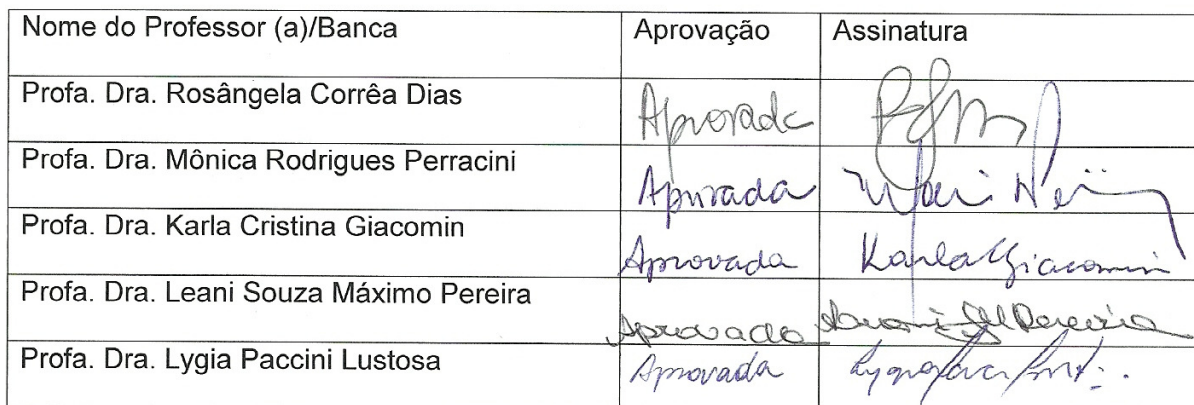 Nome do Professor (a)/Banca Aprovação Assinatura
Profa. Dra. Rosângela Corrêa Dias Aprovada
Profa. Dra. Mônica Rodrigues Perracini Aprovada
Profa. Dra. Karla Cristina Giacomin Aprovada Karla Giacomin
Profa. Dra. Leani Souza Máximo Pereira Aprovada Pereira
Profa. Dra. Lygia Paccini Lustosa Aprovada